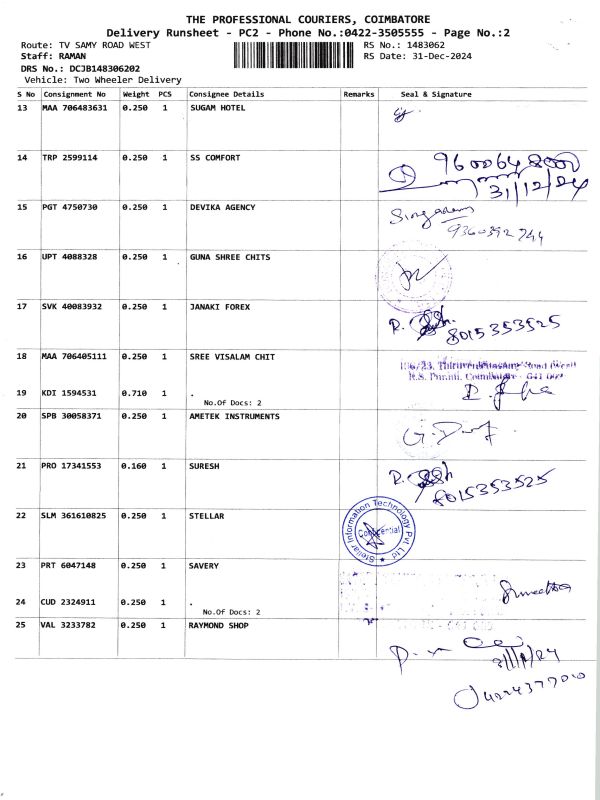 THE PROFESSIONAL COURIERS, COIMBATORE
Delivery Runsheet - PC2 - Phone No.:0422-3505555 - Page No.:2
Route: TV SAMY ROAD WEST RS No.: 1483062
Staff: RAMAN RS Date: 31-Dec-2024
DRS No.: DCJB148306202
Vehicle: Two Wheeler Delivery
S No Consignment No Weight PCS Consignee Details Remarks Seal & Signature
13 MAA 706483631 0.250 1 SUGAM HOTEL
14 TRP 2599114 0.250 1 SS COMFORT
31/12/24
15 PGT 4750730 0.250 1 DEVIKA AGENCY
16 UPT 4088328 0.250 1 GUNA SHREE CHITS
17 SVK 40083932 0.250 1 JANAKI FOREX
8015353525
18 MAA 706405111 0.250 1 SREE VISALAM CHIT
19 KDI 1594531 0.710 1 .
No.Of Docs: 2
20 SPB 30058371 0.250 1 AMETEK INSTRUMENTS
21 PRO 17341553 0.160 1 SURESH
8015353525
22 SLM 361610825 0.250 1 STELLAR
Stellar Information Technology Pvt Ltd
Confidential
23 PRT 6047148 0.250 1 SAVERY
24 CUD 2324911 0.250 1 .
No.Of Docs: 2
25 VAL 3233782 0.250 1 RAYMOND SHOP